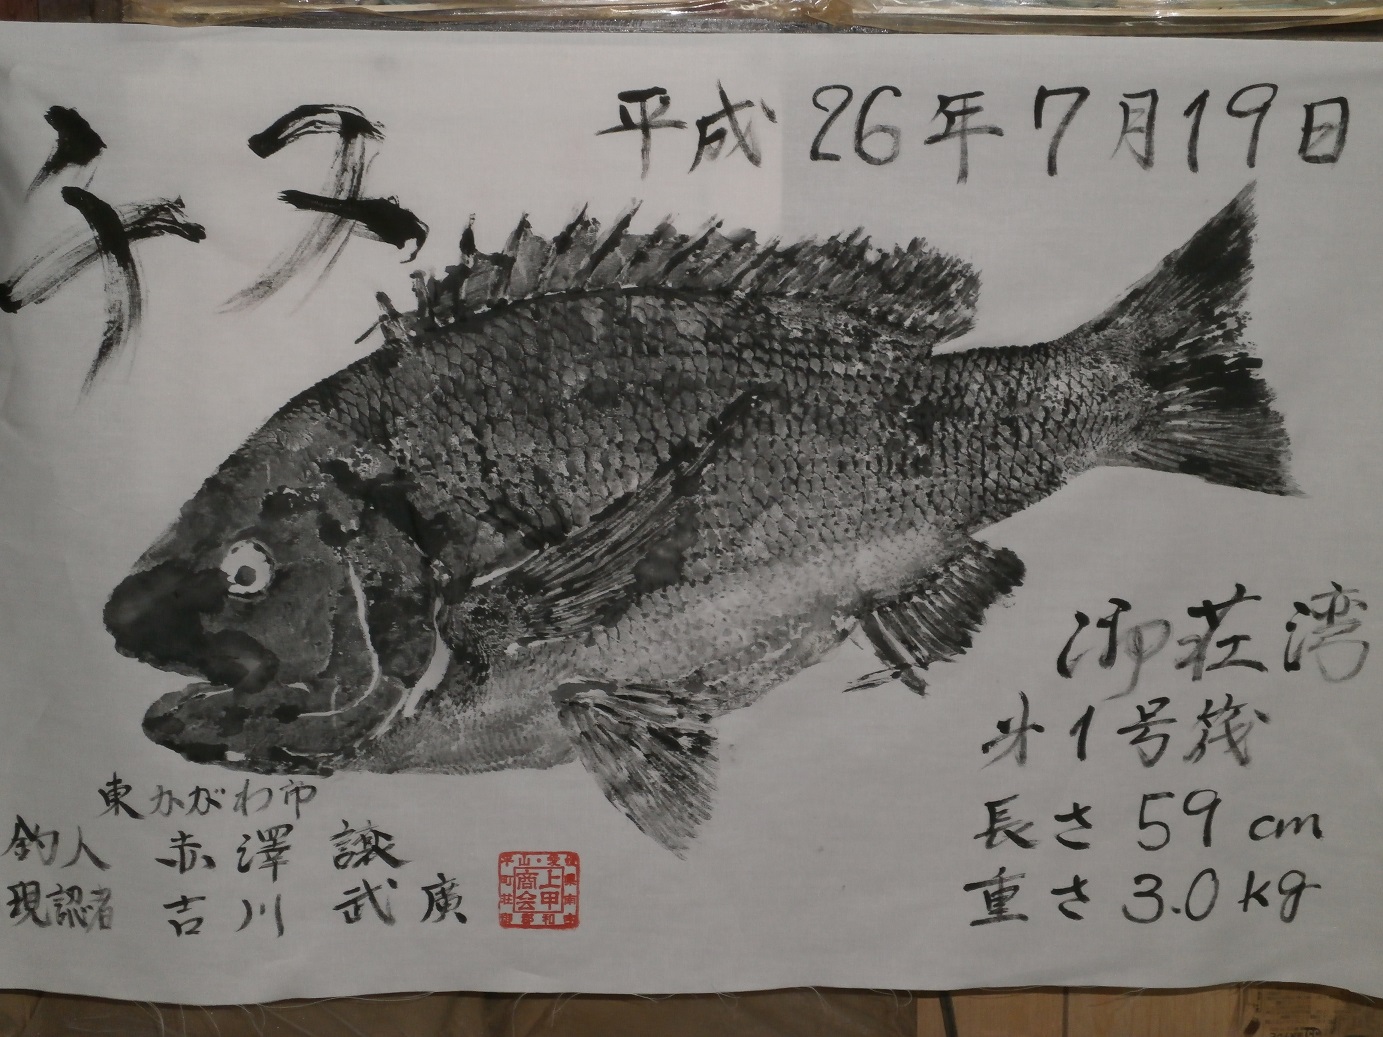 チヌ
平成26年7月19日
御荘湾
㐧1号筏
長さ 59 cm
重さ 3.0 kg
東かがわ市
釣人 赤澤 譲
現認者 吉川 武廣
上甲
商会